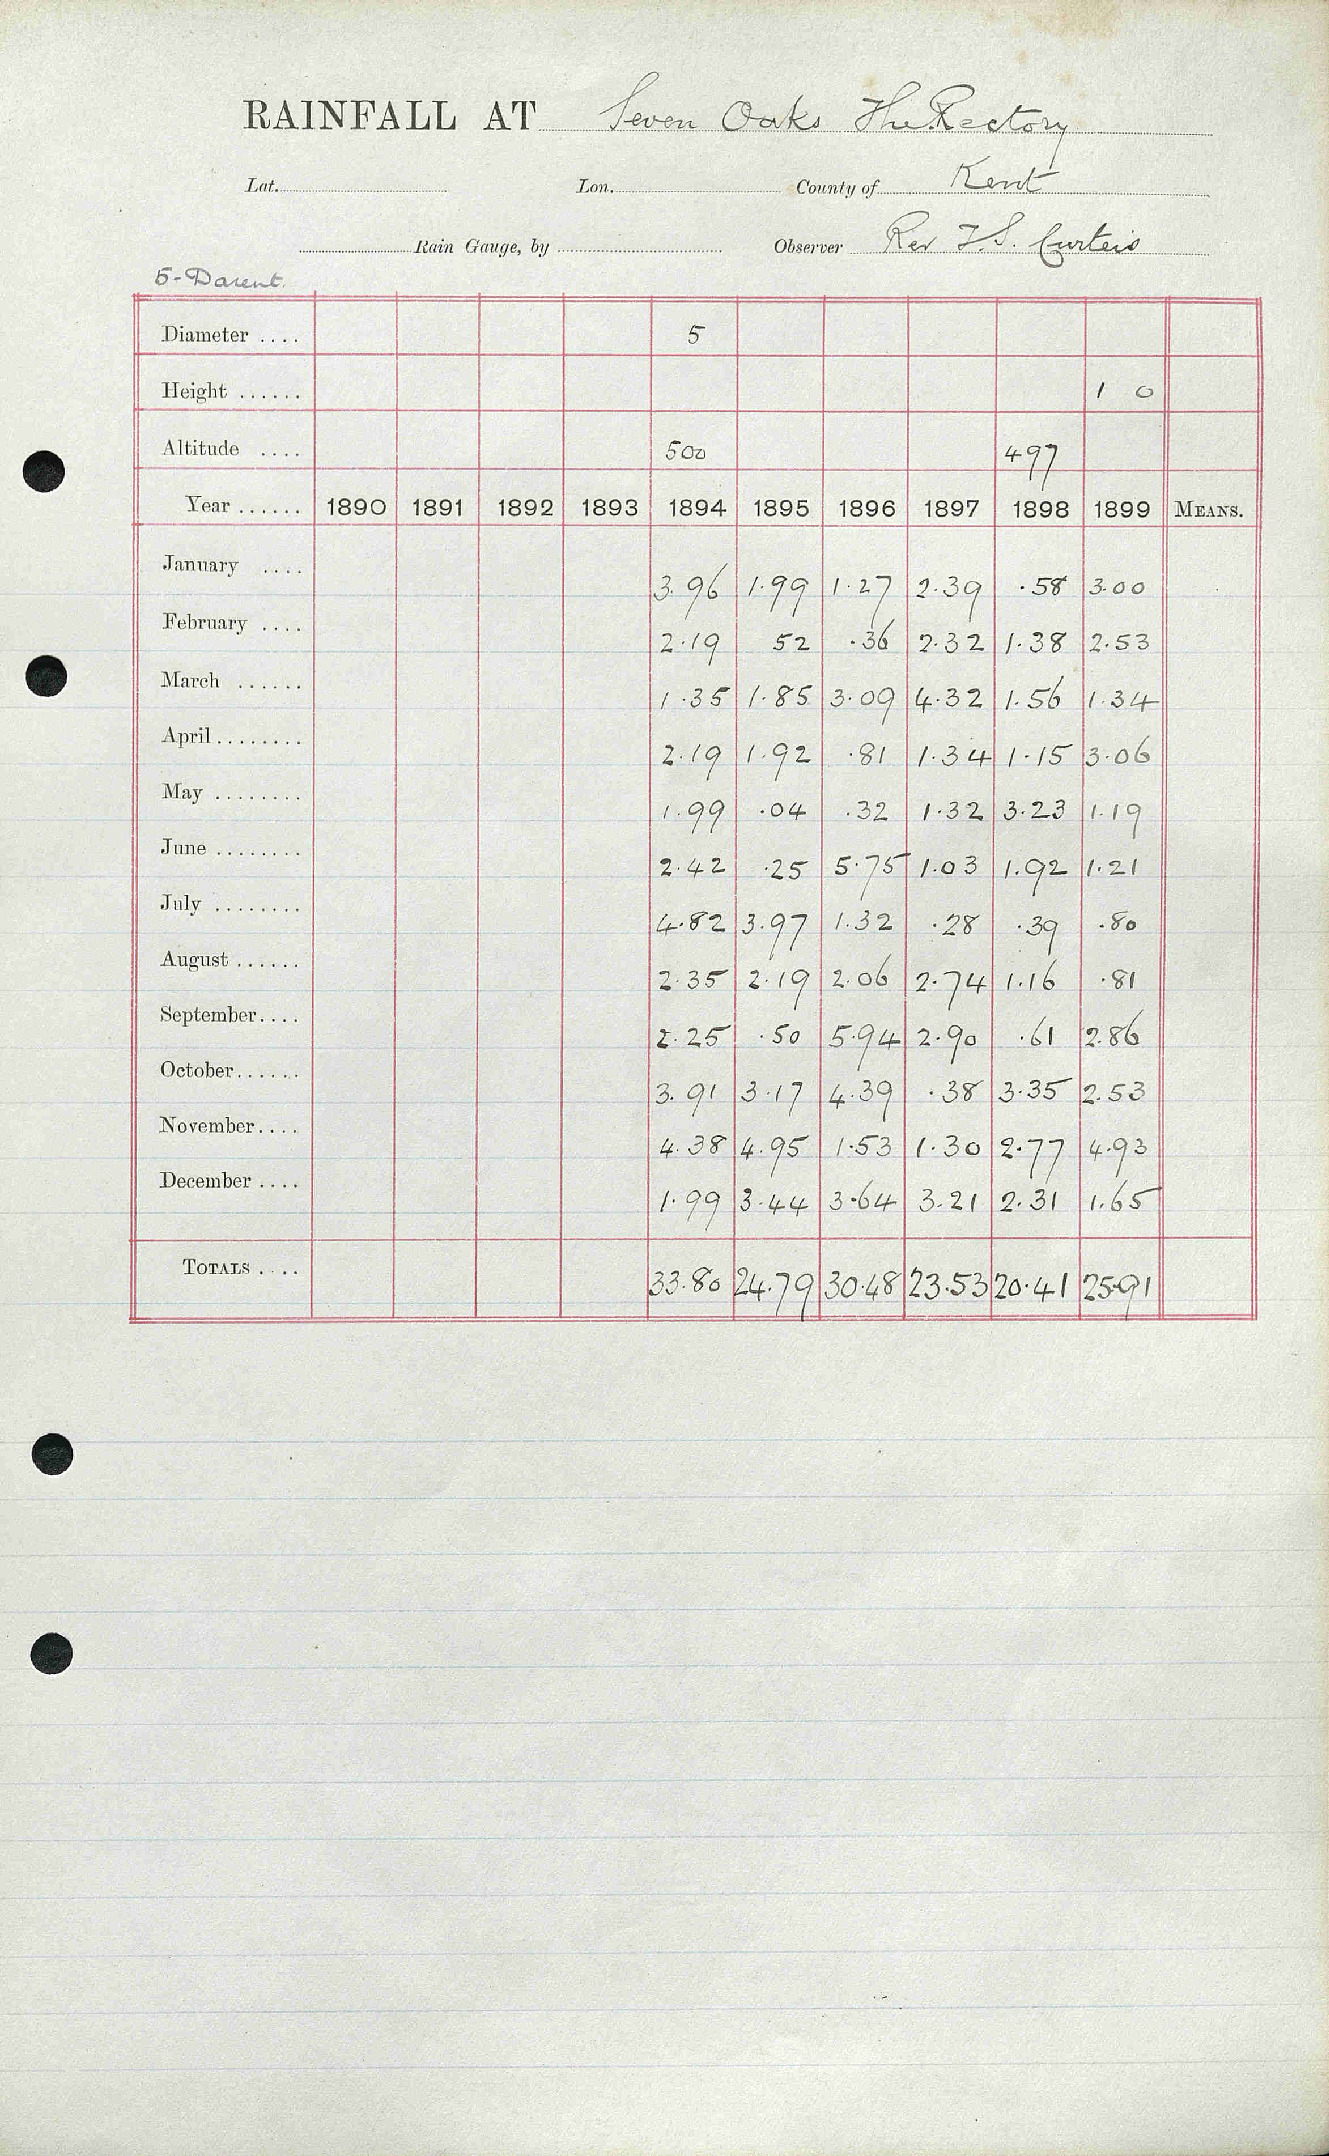 RAINFALL AT Seven Oaks The Rectory
Lat. Lon. County of Kent
Rain Gauge, by Observer Rev T.S. Curteis
5-Darent.
Diameter .... 5
Height ...... 1 0
Altitude .... 500 497
Year ...... 1890 1891 1892 1893 1894 1895 1896 1897 1898 1899 MEANS.
January .... 3.96 1.99 1.27 2.39 .58 3.00
February .... 2.19 52 .36 2.32 1.38 2.53
March ...... 1.35 1.85 3.09 4.32 1.56 1.34
April ........ 2.19 1.92 .81 1.34 1.15 3.06
May ........ 1.99 .04 .32 1.32 3.23 1.19
June ........ 2.42 .25 5.75 1.03 1.92 1.21
July ........ 4.82 3.97 1.32 .28 .39 .80
August ...... 2.35 2.19 2.06 2.74 1.16 .81
September.... 2.25 .50 5.94 2.90 .61 2.86
October...... 3.91 3.17 4.39 .38 3.35 2.53
November.... 4.38 4.95 1.53 1.30 2.77 4.93
December .... 1.99 3.44 3.64 3.21 2.31 1.65
TOTALS .... 33.80 24.79 30.48 23.53 20.41 25.91